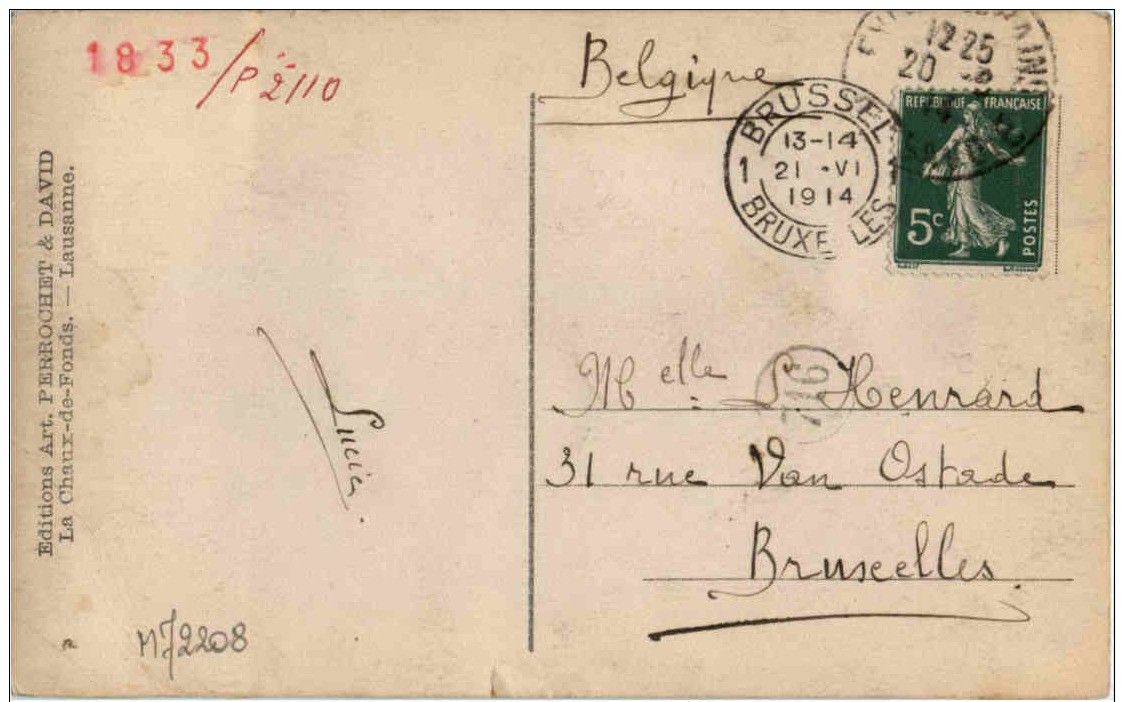 1833/P2110
Belgique
12 25
20
BRUSSEL
13-14
1 21 -VI 1
1914
BRUXELLES
REPUBLIQUE FRANÇAISE
5c
POSTES
Editions Art. PERROCHET & DAVID
La Chaux-de-Fonds. — Lausanne.
Lucien
Melle. Henrard
716
31 rue Van Ostade
Bruxelles.
M72208